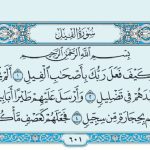 سُورَةُ الفِيلِ
بِسْمِ اللَّهِ الرَّحْمَٰنِ الرَّحِيمِ
كَيْفَ فَعَلَ رَبُّكَ بِأَصْحَٰبِ ٱلْفِيلِ ١
فِى تَضْلِيلٍ ٢ وَأَرْسَلَ عَلَيْهِمْ طَيْرًا
بِحِجَارَةٍ مِّن سِجِّيلٍ ٤ فَجَعَلَهُمْ كَعَصْفٍ
٦٠١